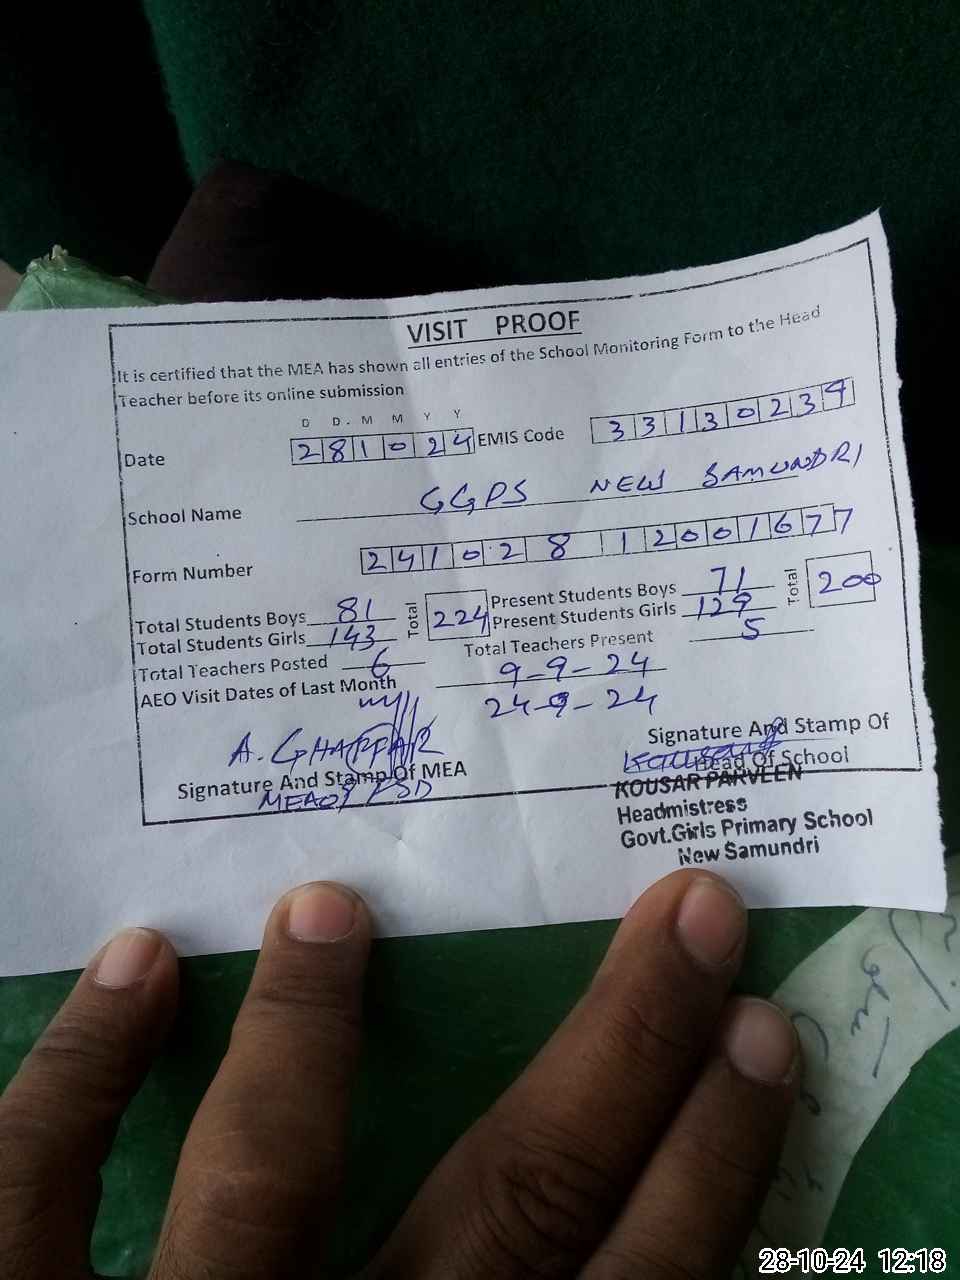 VISIT PROOF
It is certified that the MEA has shown all entries of the School Monitoring Form to the Head
Teacher before its online submission
D D. M M Y Y
Date 281024 EMIS Code 33130239
School Name GGPS NEW SAMUNDRI
Form Number 241028 12001677
Total Students Boys 81 Total 224 Present Students Boys 71 Total 200
Total Students Girls 143 Present Students Girls 129
Total Teachers Posted 6 Total Teachers Present 5
AEO Visit Dates of Last Month 9-9-24
24-9-24
A. GHAFFAR
Signature And Stamp Of MEA
Signature And Stamp Of
Head Of School
KOUSAR PARVEEN
Headmistress
Govt.Girls Primary School
New Samundri
28-10-24 12:18